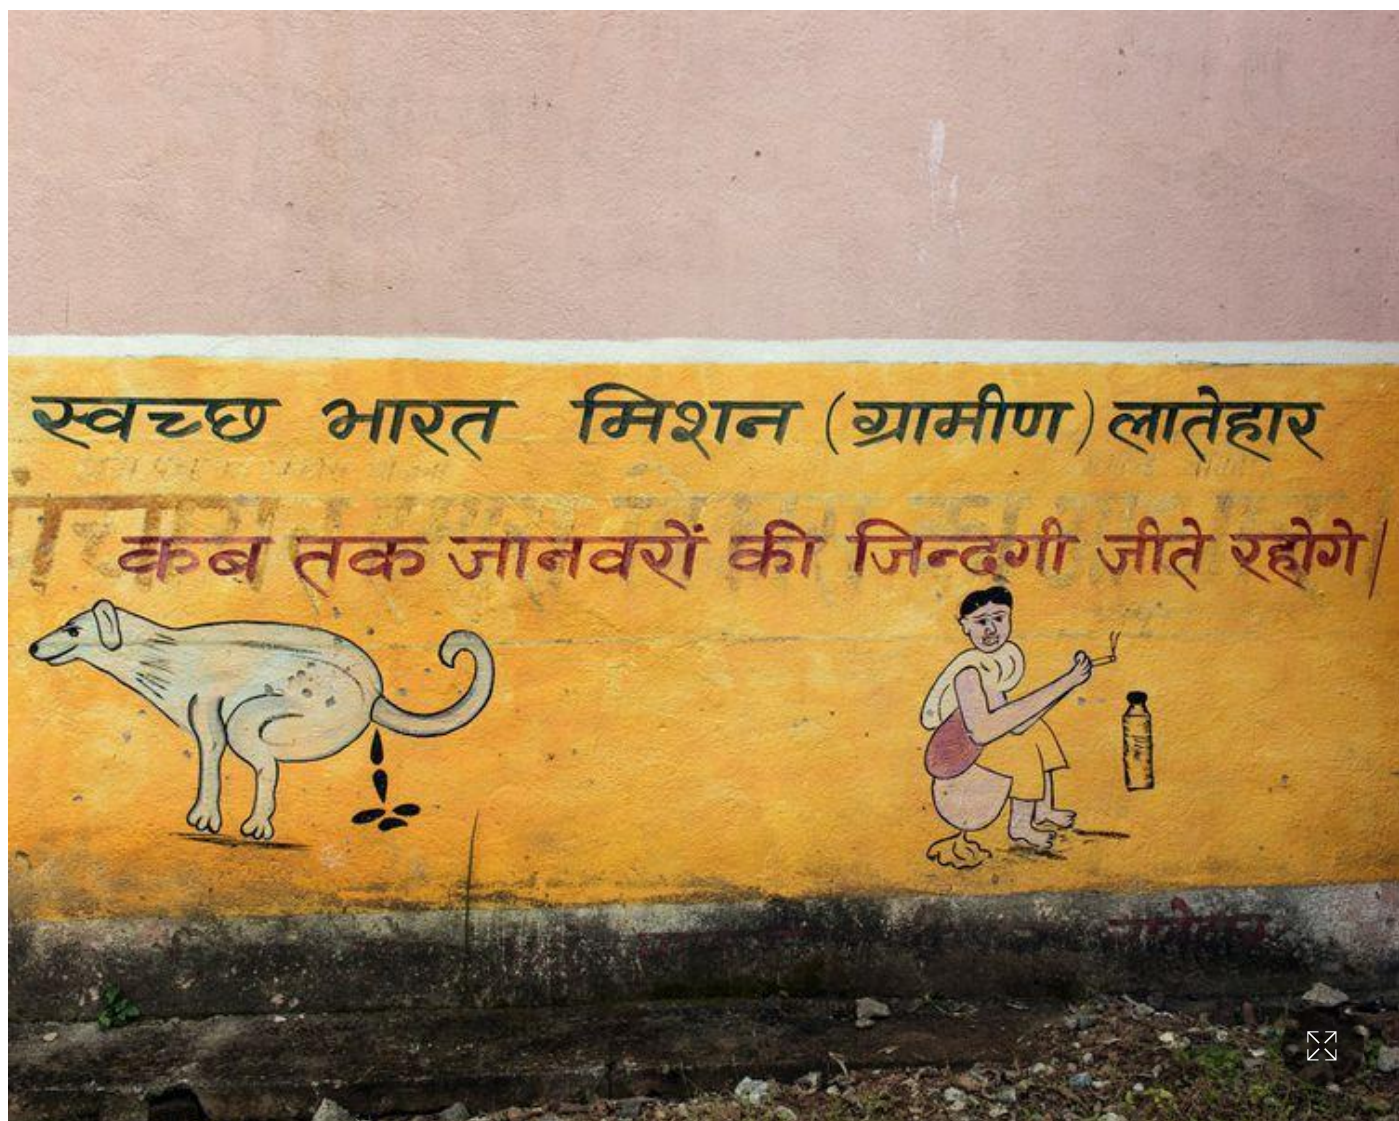 स्वच्छ भारत मिशन (ग्रामीण) लातेहार
कब तक जानवरों की जिन्दगी जीते रहोगे|